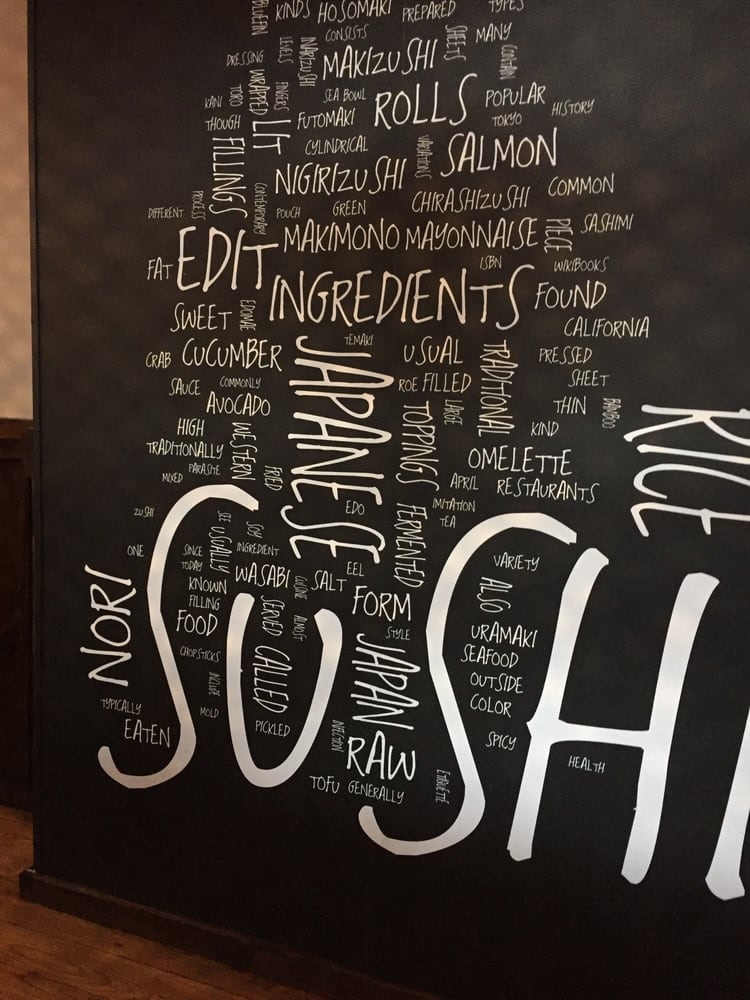 BLUEFIN
KINDS HOSOMAKI PREPARED TYPES
CONSISTS
LEVELS
INARIZUSHI
MAKIZUSHI
SHEETS
MANY
CONTAIN
DRESSING
KANI
TORO
WRAPPED
FINGERS
SEA BOWL
ROLLS
POPULAR
TOKYO
HISTORY
THOUGH
LIT
FUTOMAKI
CYLINDRICAL
VARIATIONS
SALMON
FILLINGS
NIGIRIZUSHI
COMMON
CHIRASHIZUSHI
DIFFERENT
PROCESS
CONTEMPORARY
POUCH
GREEN
MAKIMONO MAYONNAISE
PIECE
SASHIMI
FAT
EDIT
ISBN
WIKIBOOKS
INGREDIENTS
FOUND
SWEET
EDOMAE
CALIFORNIA
CRAB
CUCUMBER
TEMAKI
USUAL
TRADITIONAL
PRESSED
SAUCE
COMMONLY
JAPANESE
ROE FILLED
SHEET
AVOCADO
TOPPINGS
LARGE
THIN
BAMBOO
RICE
HIGH
WESTERN
KIND
TRADITIONALLY
PARASITE
OMELETTE
MIXED
FRIED
APRIL
RESTAURANTS
EDO
FERMENTED
IMITATION
TEA
ZUSHI
SEE
USUALLY
SOY
ONE
SINCE
INGREDIENT
TODAY
WASABI
EEL
SALT
VARIETY
KNOWN
FILLING
FORM
ALSO
NORI
FOOD
SERVED
ALMOST
STYLE
URAMAKI
CHOPSTICKS
CALLED
JAPAN
SEAFOOD
INCLUDE
OUTSIDE
TYPICALLY
MOLD
COLOR
EATEN
PICKLED
INFECTION
RAW
SPICY
TOFU GENERALLY
ETIQUETTE
HEALTH
SUSHI